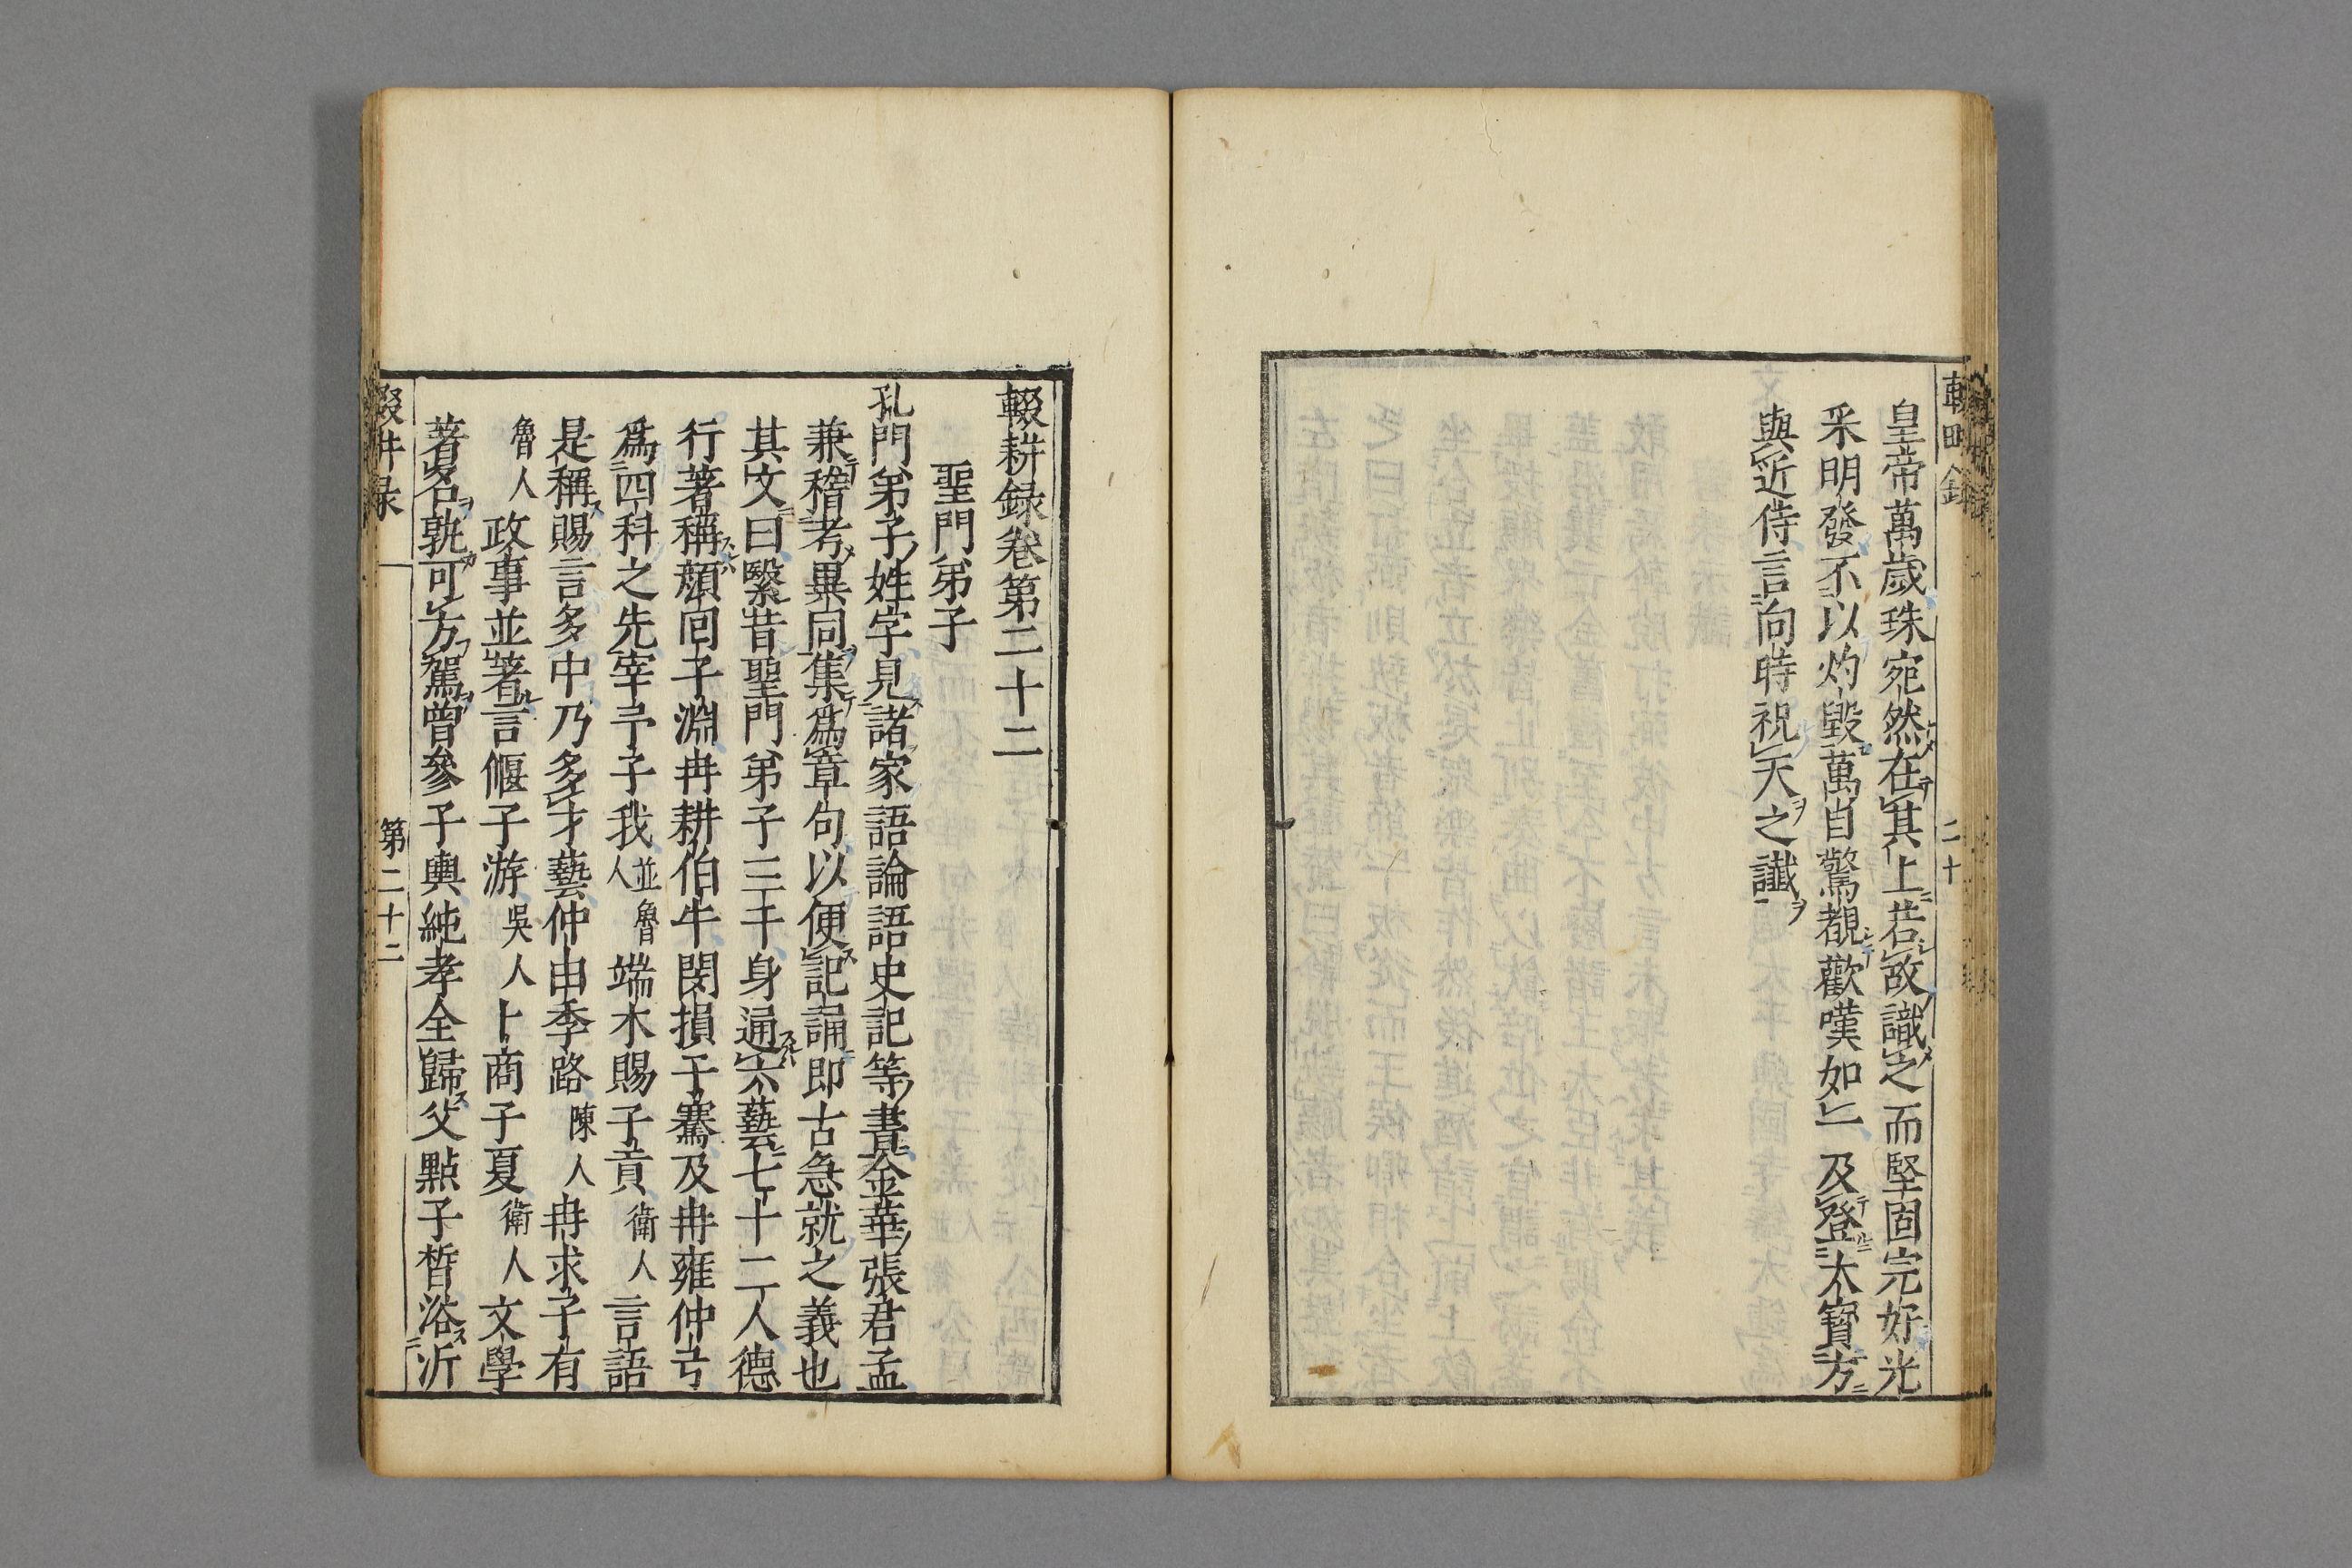 皇帝萬歲珠宛然在其上若故識之而堅固完好光
采明發不以灼毀萬目驚覩歡嘆如一及登太寶方
與近侍言向時祝天之讖
二十
輟耕録卷第二十二
聖門弟子
孔門弟子姓字見諸家語論語史記等書金華張君孟
兼稽考異同集爲章句以便記誦即古急就之義也
其文曰繄昔聖門弟子三千身通六藝七十二人德
行著稱顔回子淵冉耕伯牛閔損子騫及冉雍仲弓
爲四科之先宰予子我並魯人端木賜子貢衛人言語
是稱賜言多中乃多才藝仲由季路陳人冉求子有
魯人政事並著言偃子游吳人卜商子夏衛人文學
著名孰可方駕曾參子輿純孝全歸父點子皙浴沂
第二十二